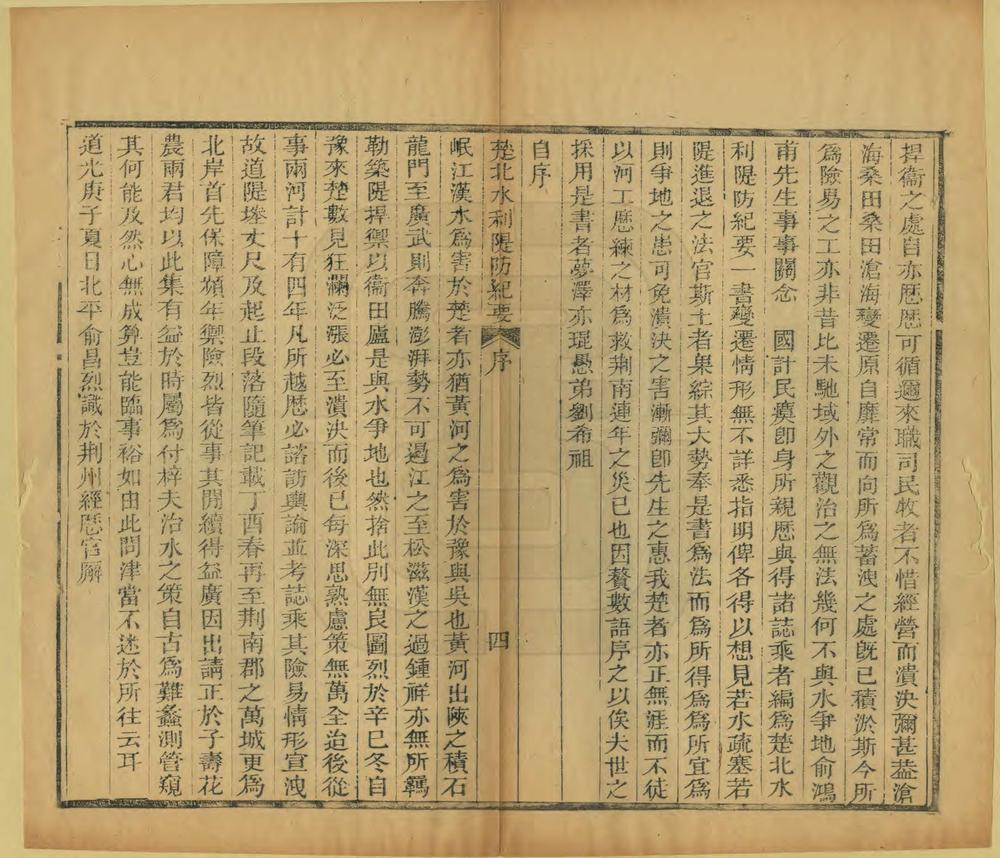 捍衞之處自亦歷歷可循邇來職司民牧者不惜經營而潰決彌甚葢滄
海桑田桑田滄海變遷原自靡常而向所爲蓄洩之處旣已積淤斯今所
爲險易之工亦非昔比未馳域外之觀治之無法幾何不與水爭地俞鴻
甫先生事事關念　國計民瘼卽身所親歷與得諸誌乘者編爲楚北水
利隄防紀要一書變遷情形無不詳悉指明俾各得以想見若水疏塞若
隄進退之法官斯土者果綜其大勢奉是書爲法而爲所得爲爲所宜爲
則爭地之患可免潰決之害漸彌卽先生之惠我楚者亦正無涯而不徒
以河工歷練之材爲救荆南連年之災已也因贅數語序之以俟夫世之
採用是書者夢澤亦琨愚弟劉希祖
自序
楚北水利隄防紀要　序　四
岷江漢水爲害於楚者亦猶黃河之爲害於豫與吳也黃河出陝之積石
龍門至廣武則奔騰澎湃勢不可遏江之至松滋漢之過鍾祥亦無所羈
勒築隄捍禦以衞田廬是與水爭地也然捨此別無良圖烈於辛巳冬自
豫來楚數見狂瀾泛漲必至潰決而後已每深思熟慮策無萬全迨後從
事兩河計十有四年凡所越歷必諮訪輿論並考誌乘其險易情形宣洩
故道隄塍丈尺及起止段落隨筆記載丁酉春再至荆南郡之萬城更爲
北岸首先保障頻年禦險烈皆從事其閒續得益廣因出請正於子壽花
農兩君均以此集有益於時屬爲付梓夫治水之策自古爲難蠡測管窺
其何能及然心無成算豈能臨事裕如由此問津當不迷於所往云耳
道光庚子夏日北平俞昌烈識於荆州經歷官廨